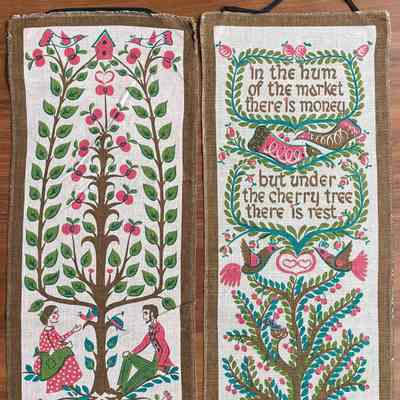 In the hum
of the market
there is money,
but under
the cherry tree
there is rest.